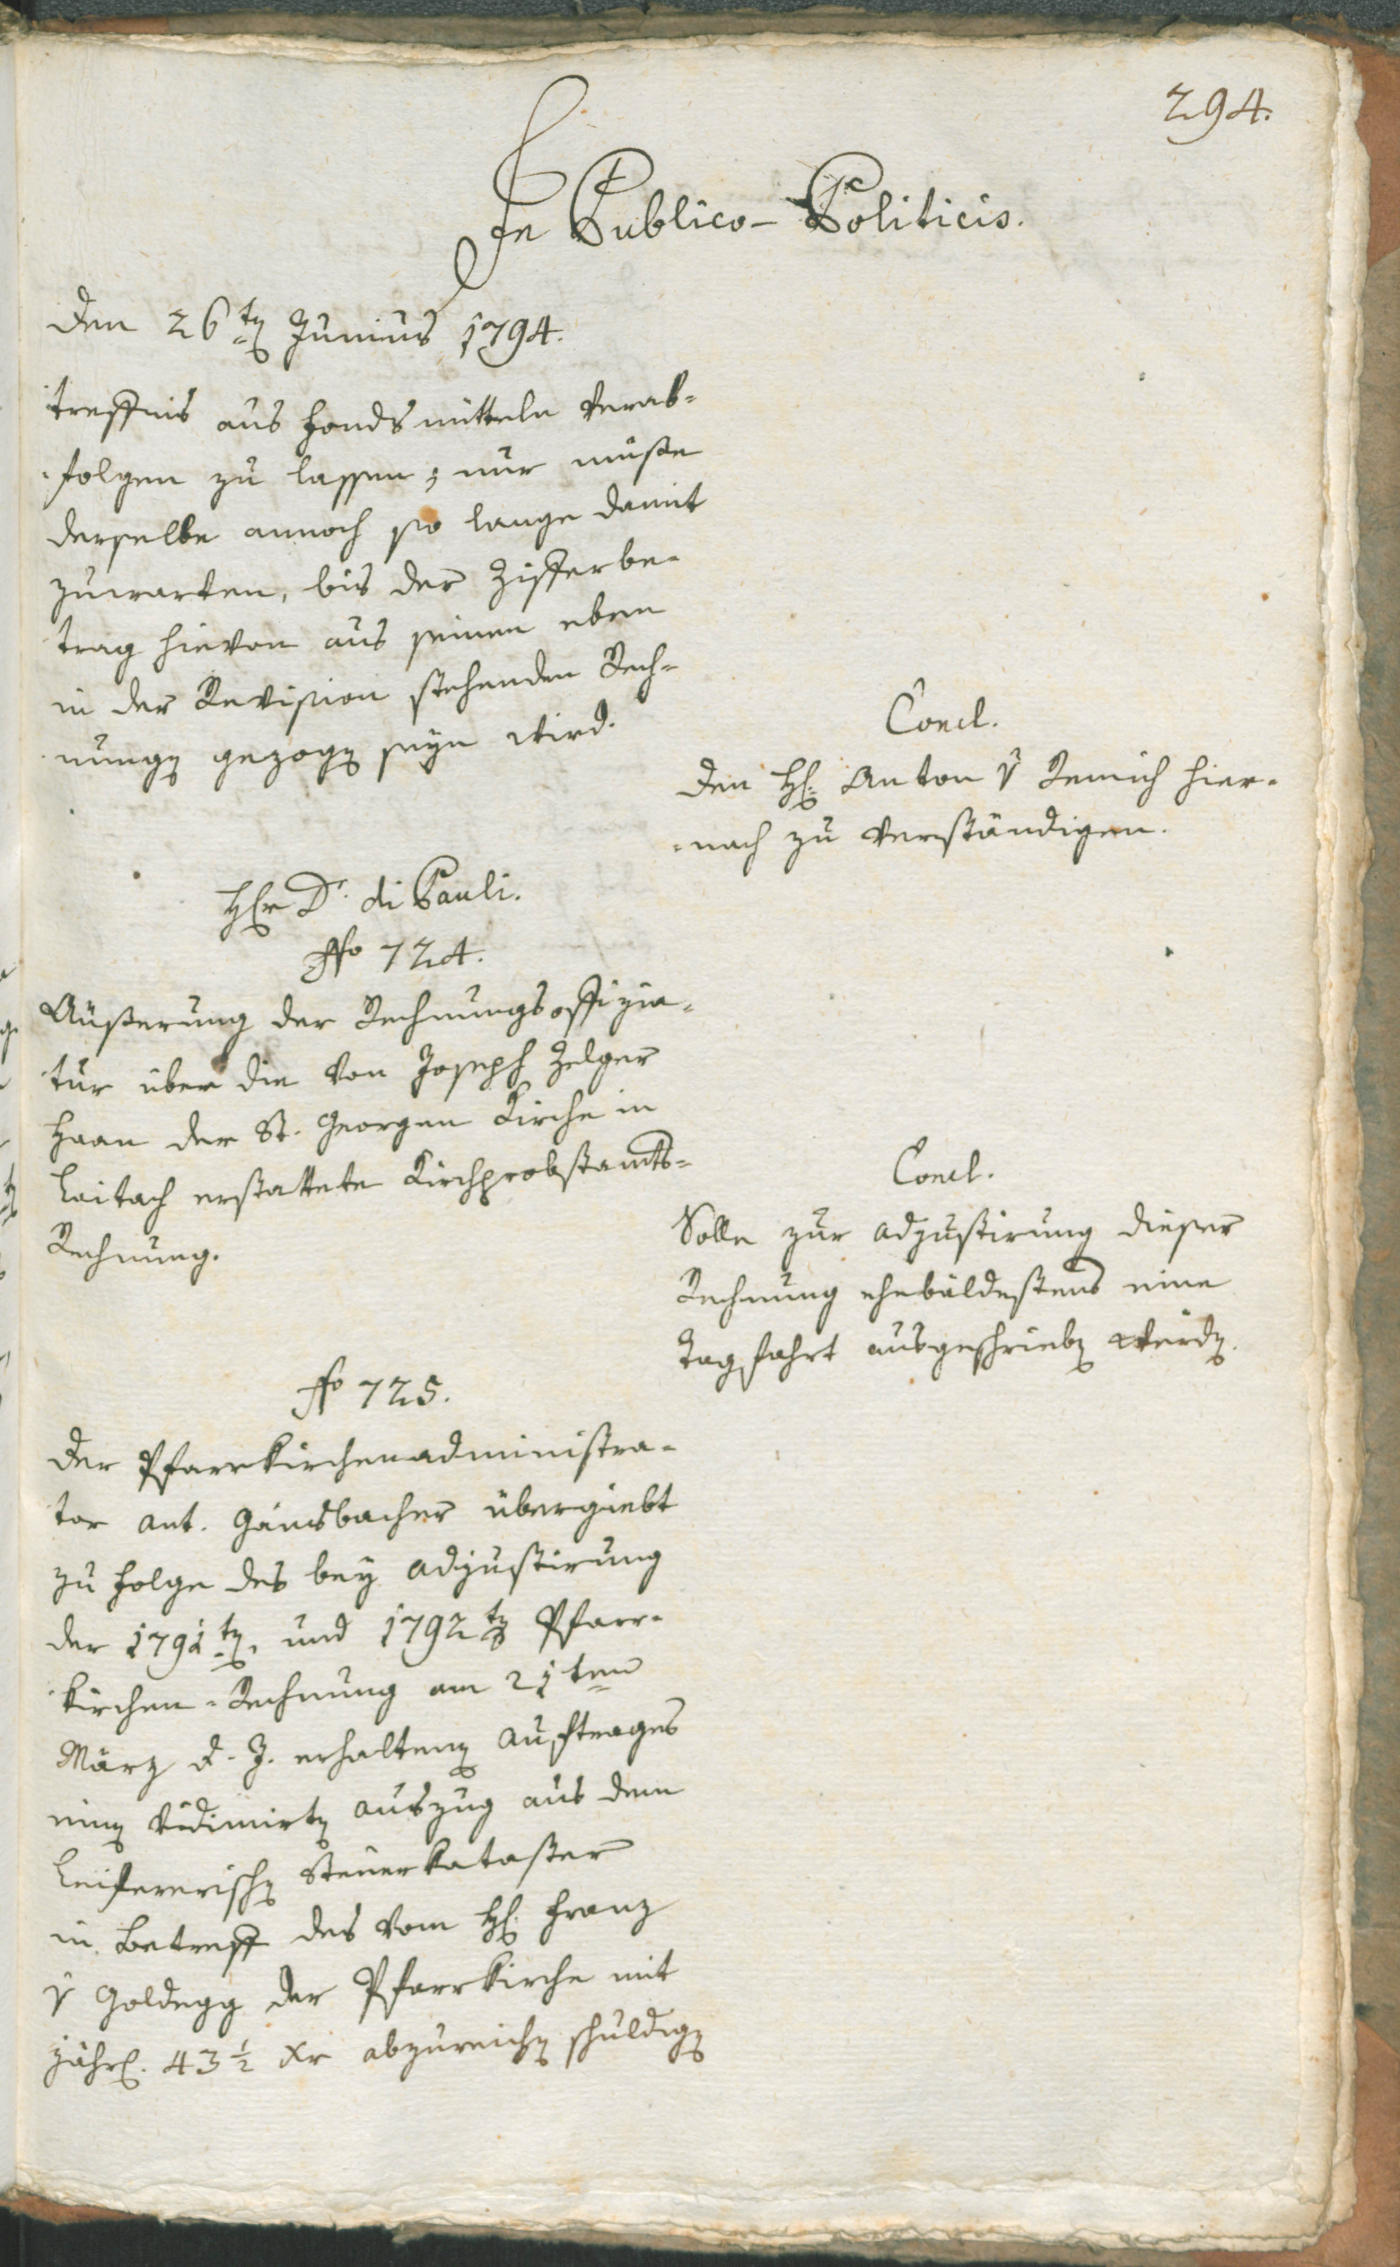 294.
In Publico-Politicis.
den 26ten Junius 1794.
treffnis aus Fonds mitteln verab-
folgen zu lassen; nur müße
derselbe annoch so lange damit
zuwarten, bis der Zifferbe-
trag hievon aus seinen eben
in der Revision stehenden Rech-
nungen gezogen seyn wird.
Concl.
den H: Anton v Remich hier-
nach zu verständigen.
Herr Dr. di Pauli.
No 724.
Äußerung der Rechnungsoffizia-
tur über die von Joseph Zelger
Haan der St. Georgen Kirche in
Laitach erstattete Kirchprobstamts-
Rechnung.
Concl.
Solle zur adjustirung dieser
Rechnung ehebäldestens eine
Tagfahrt ausgeschrieben werden.
No 725.
der Pfarrkirchenadministra-
tor ant. Gänsbacher übergiebt
zu folge des bey adjustirung
der 1791ten und 1792ten Pfarr-
kirchen-Rechnung am 21ten
März d. J. erhaltenen auftrages
einen vidimirten auszug aus dem
Leifererischen Steuerkataster
in betreff des vom H: Franz
v Goldegg der Pfarrkirche mit
jährl. 43 1/2 xr abzureichen schuldigen